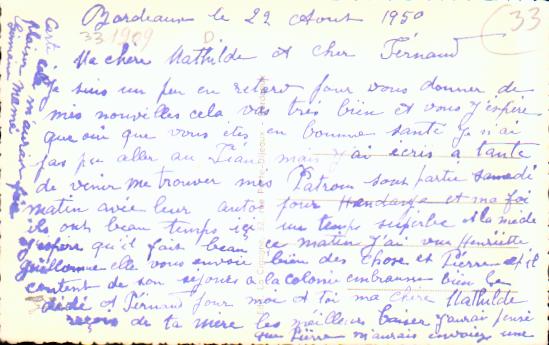 Bordeaux le 22 Aout 1950
33
33 1909
D
Ma chere Mathilde et cher Férnand
je suis un peu en retard pour vous donner de
mes nouvelles cela vas trés bien et vous j'espére
que oui que vous étes en bonne santé je n'ai
pas pu aller au mais j'ai ecris a tante
de venir me trouver mes Patrons sont partie samedi
matin avec leur auto pour Hendaye et ma foi
ils ont beau temps ici un temps superbe et la
j'espére qu'il fait beau ce matin j'ai vue Henriette
Guillonne elle vous envoie bien des chose et Piérre et il
content de son séjours a la colonie embrasse bien le
dédé et Férnand pour moi et toi ma chére Mathilde
reçois de ta mére les meilleurs baiser j'aurai pensé
que Piérre m'aurais envoiez une
Carte
plaisir cela m'aurais fait